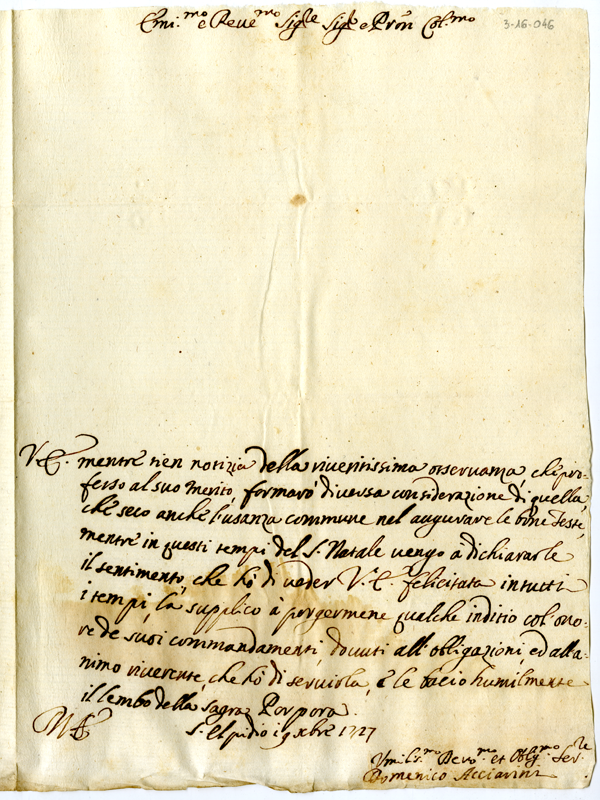 Emi.mo e Reve.mo Sig.re Sig.re e Prõn Col.mo
3-16-046
V.E. mentre tien notizia della riveritissima osservanza, che pro-
fesso al suo merito, formarà diversa considerazione di quella,
che seco anche l'usanza commune nel augurare le bone Feste,
mentre in questi tempi del S. Natale vengo a dichiararle
il sentimento, che hò di veder V.E. felicitata in tutti
i tempi, la supplico à porgermene qualche inditio col'ono-
re de suoi commandamenti, dovuti all'obligazioni, ed all'a-
nimo riverente, che hò di servirla, e le bacio humilmente
il lembo della sagra Porpora.
S. Elpidio 19 xbre 1727
Vmilis.mo Devo.mo et Oblig.mo Ser.re
Domenico Acciarini